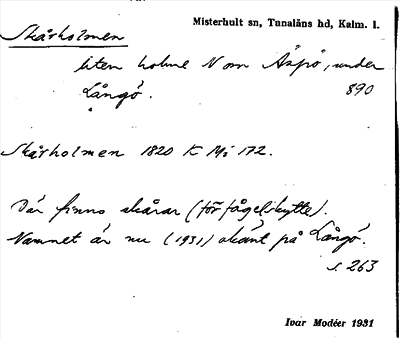 Misterhult sn, Tunaläns hd, Kalm. l.
Skårholmen
liten holme N om Äspö, under
Långö.
890
Skårholmen 1820 K Mi 172.
Där finns skårar (för fågelskytte).
Namnet är nu (1931) okänt på Långö.
s. 263
Ivar Modéer 1931